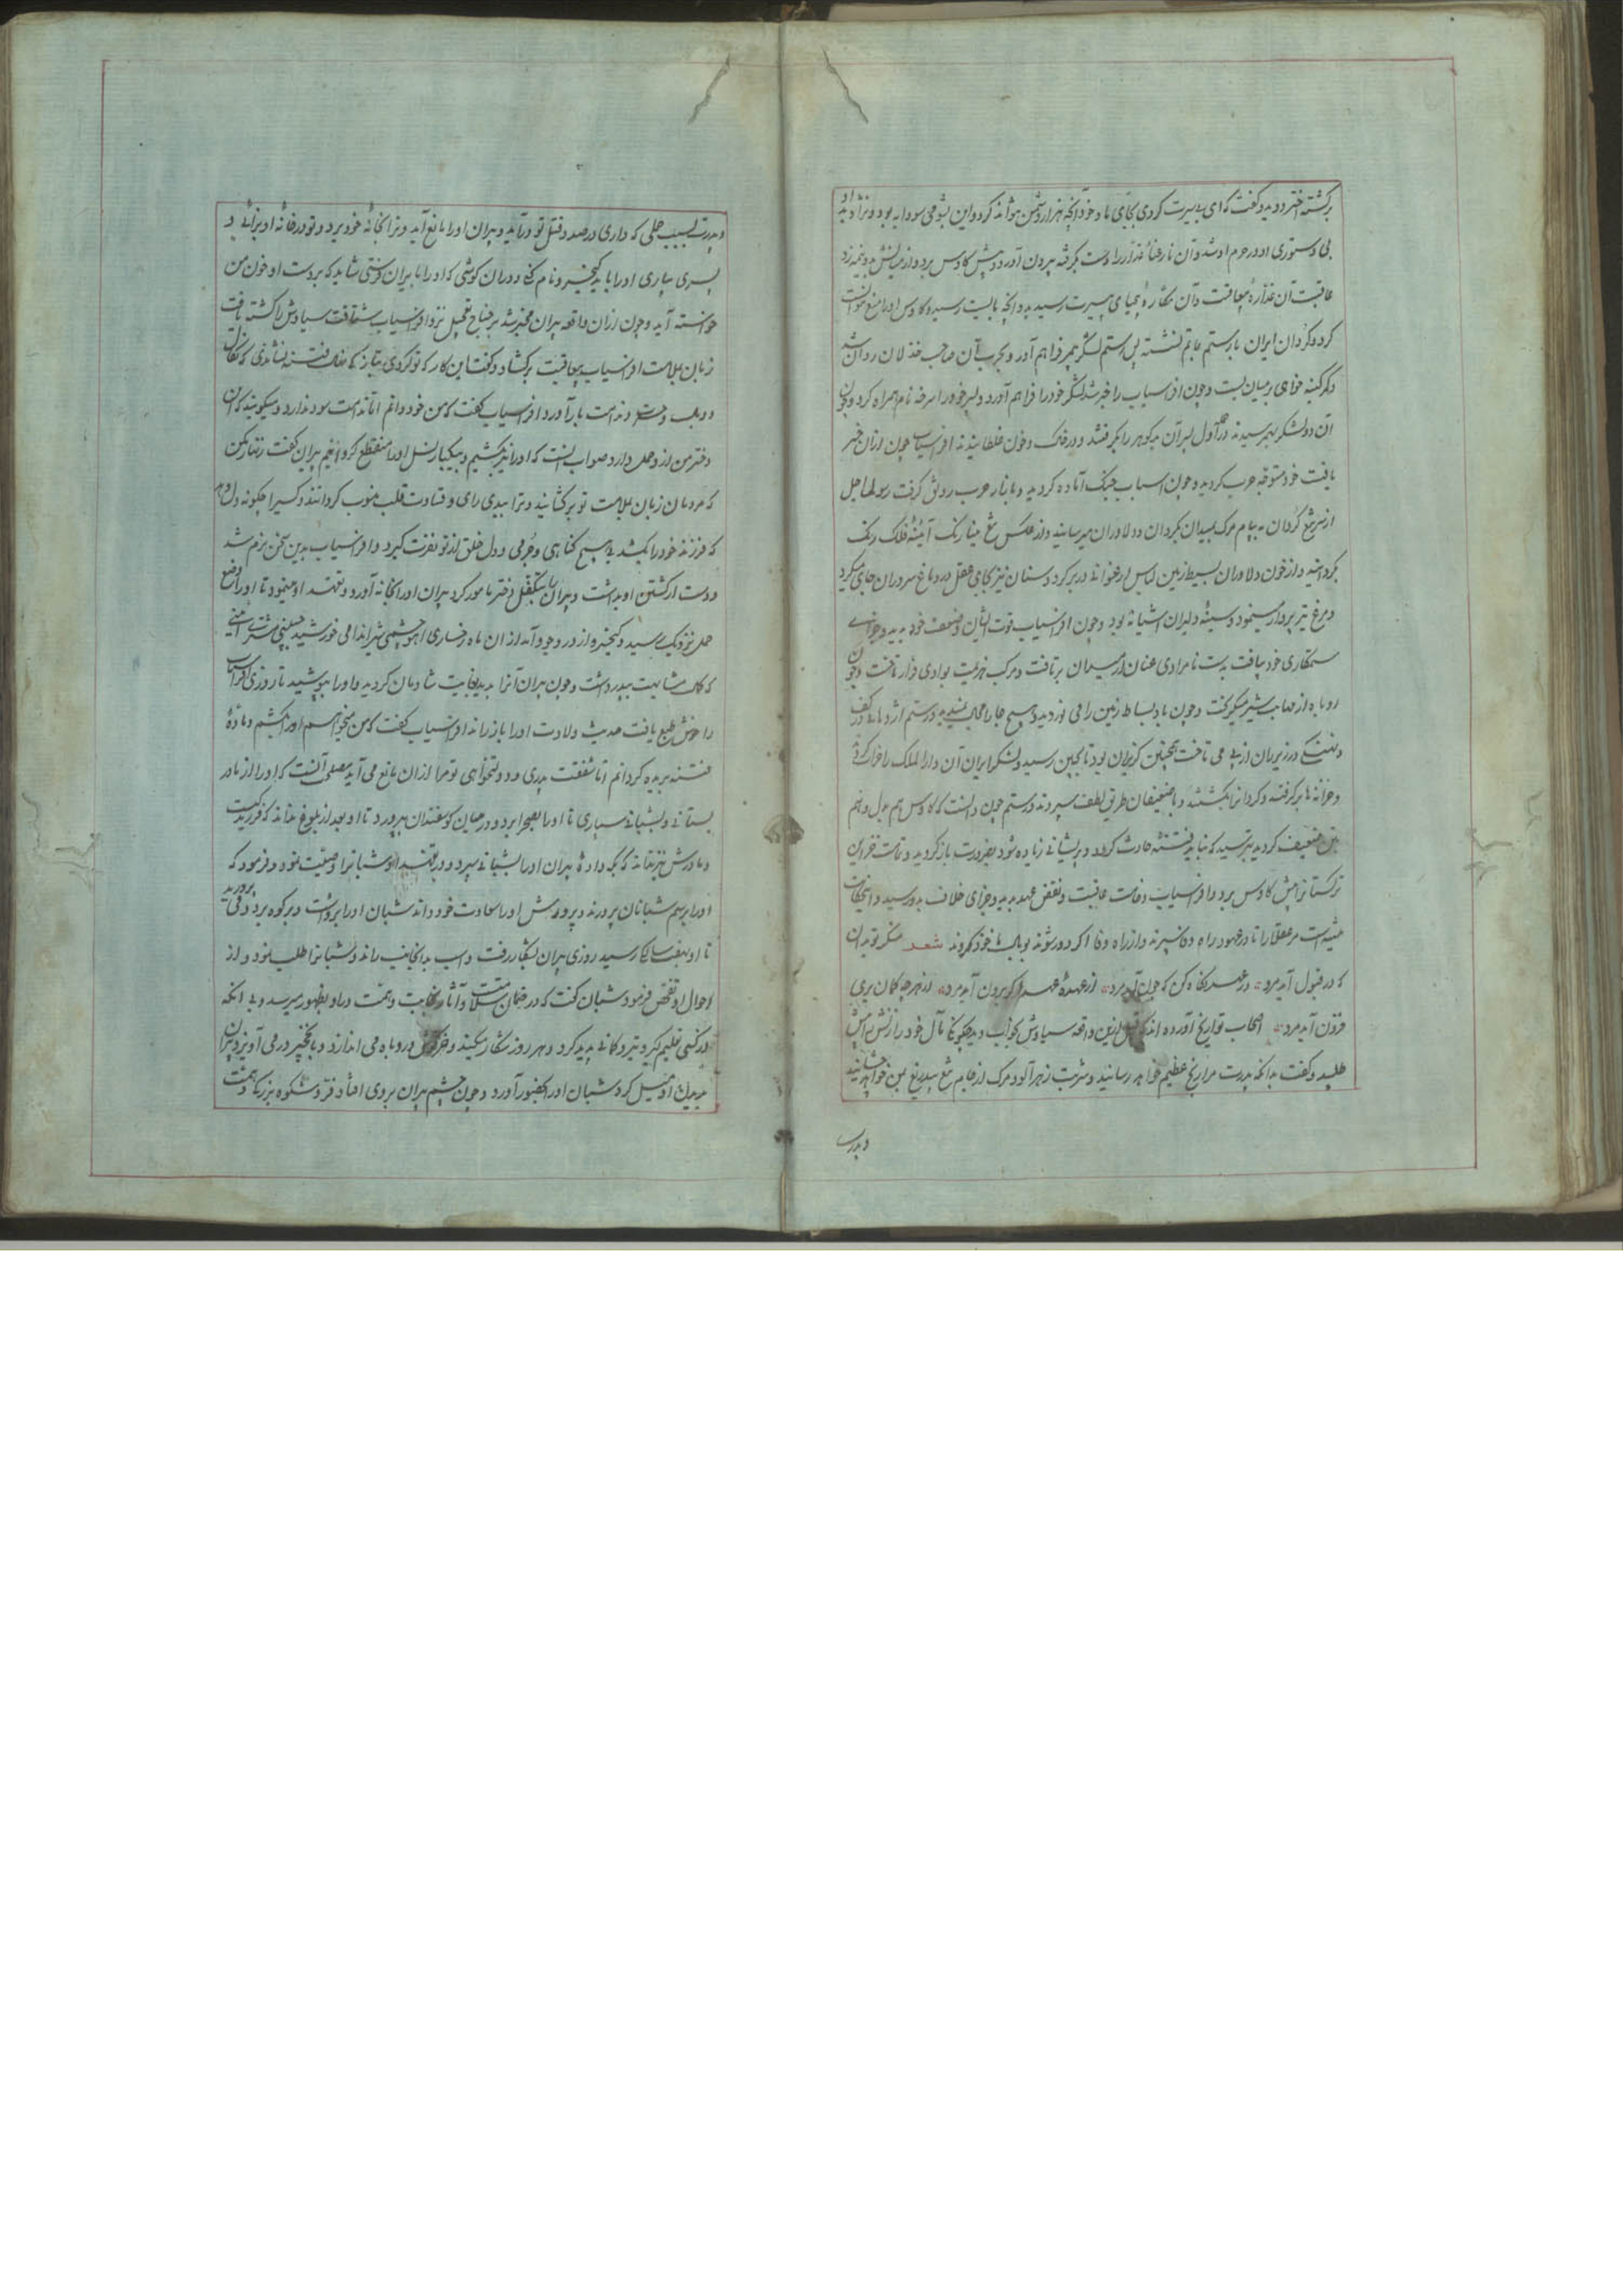 برکشته اختر دوید و کفت که ای بد سیرت کردی بجای ما و خود آنچه هزار دشمن نتواند کرد و این بشومی سودابه بود و نژاد بد او
بی دستوری او در حرم او شد و آن نارعنا غداره را دست بکرفته بیرون آورد و پیش کاوس برد و از میانش بدو نیمه زد
عاقبت آن غداره بمعاقبت و آن مکاره بجیای سیرت رسید بدو آنچه بایست رسید و کاوس او را منع نتوانست
کرد و کردان ایران با رستم بماتم نشستند پس رستم لشکر بهم فراهم آورد و بحرب آن صاحب خذلان روان شد
و کمر کینه خواهی بر میان بست و چون افراسیاب را خبر شد لشکر خود را فراهم آورد و پسر خود را سرخه نام همراه کرد و چون
آن دو لشکر بهم رسیدند در حمله اول پسر آن بدکوهر را بکرفتند و در خاک و خون غلطانیدند افراسیاب چون ازان خبر
یافت خود متوجه حرب کردید و چون اسباب جنک آماده کردید و بازار حرب رونق کرفت رسولها اجل
از سر تیغ کردان به پیام مرک بمیدان بکردان و دلاوران میرسانید و از عکس تیغ مینا رنک آئینه فلک رنک
بکردانید و از خون دلاوران بسیط زمین لباس ارغوانی در بر کرد و سنان نیز بجای عقل در دماغ سروران جای میکرد
و مرغ تیر پرواز مینمود و سینه دلیران آشیانه بود و چون افراسیاب قوت ایشان و ضعف خود بدید و جزای
ستمکاری خود بیافت بدست نامرادی عنان از میدان برتافت و مرکب هزیمت بوادی فرار تاخت و چون
روباه از صاحب شیر میکریخت و چون باد بساط زمین را می نوردید و هیچ جا را مجال ندید و رستم اژدهائی در کف
و نهنکی در زیر ران از پی می تاخت همچنین کریزان بود تا بچین رسید و لشکر ایران آن دار الملک را خراب کرد
و خزانه ها برکرفتند و کردانرا بکشتند و با ضعیفان طریق لطف سپردند و رستم چون دانست که کاوس هم بدل و هم
بتن ضعیف کردید بترسید که نباید فتنه حادث کردد و پریشانی زیاده شود بضرورت بازکردید و تمامت خزاین
ترکستانرا پیش کاوس برد و افراسیاب وخامت عاقبت و نقض عهد بدید و جزای خلاف بدو رسید و اینحکایت
تنبیه است مر عقلا را تا در عهود راه وفا سپرند و از راه وفا اکر دور شوند بوبال ماخوذ کردند شعر منکر تو بدان
که در قبول آید مرد ٭ در عهد نکاه کن که چون آید مرد ٭ از عهده عهد اکر برون آید مرد ٭ از هر چه کمان بری
فزون آید مرد ٭ اصحاب تواریخ آورده اند که قبل ازین واقعه سیاوش بخواب دید چکونکی مآل خود را زنش را پیش
طلبید و کفت بدانکه پدرت مرا رنج عظیم خواهد رسانید و شربت زهر آلود مرک از جام تیغ بیدریغ بمن خواهد چشانید
و پدرت
و پدرت بسبب حملی که داری در صدد قتل تو درآید و پیران او را مانع آید و ترا بخانه خود برد و تو در خانه او بزائی و
پسری بیاری او را باید کیخسرو نام کنی و در آن کوشی که او را بایران فرستی شاید که بر دست او خون من
خواسته آید و چون ازان واقعه پیران مخبر شد بر جناح تعجیل نزد افراسیاب شتافت سیاوش را کشته یافت
زبان بملامت افراسیاب بمعاقبت برکشاد و کفت این کار که تو کردی بتازکی فتنه نشاندی که نکال
و وبال و حسرت و ندامت بار آورد افراسیاب کفت که من خود دانم اما ندامت سود ندارد و میکویند که آن
دختر من از وی حمل دارد صواب آنست که او را نیز بکشیم و بیکبار نسل او را منقطع کردانیم پیران کفت زنهار مکن
که مردمان زبان ملامت بر تو برکشایند و ترا ببدی رای و قساوت قلب منسوب کردانند و کسیرا چکونه دل دهد
که فرزند خود را بکشد بی هیچ کناهی و جرمی و دل خلق از تو نفرت کیرد و افراسیاب بدین سخن نرم شد
و دست از کشتن او بداشت و پیران را بتکفل دختر مامور کرد پیران او را بخانه آورد و تعهد او مینمود تا او را وضع
حمل نزدیک رسید و کیخسرو ازو در وجود آمد ازان ماه رخساری آهو چشمی شیر اندامی خورشید جبینی مشتری
که کمال مشابهت بپدر داشت و چون پیران آنرا بدید بغایت شادمان کردید و او را بپوشید تا روزی افراسیاب
را خوش طبع یافت حدیث ولادت او را باز راند افراسیاب کفت که من میخواهم او را بکشم و ماده
فتنه بریده کردانم اما شفقت پدری و دولتخواهی تو مرا ازان مانع می آید مصلحت آنست که او را از مادر
بستانی و بشبانی سپاری تا او را بصحرا برد و در میان کوسفندان بپرورد تا او بعد از بلوغ نداند که فرزند کیست
و مادرش نیز نداند که بکه داده پیران او را بشبانی سپرد و در تعهد او شبانرا وصیت نمود و فرمود که
او را برسم شبانان پرورند و پرورش او را سعادت خود داند شبان او را برداشت و بر کوه برد و می پرورید
تا او بهفت سالکی رسید روزی پیران بشکار رفت و اسب بدانجانب راند و شبانرا طلب نمود و از
احوال او تفحص فرمود شبان کفت که در ضمان سلامتست و آثار نجابت و همت در او بظهور میرسد و بی آنکه
از کسی تعلیم کیرد تیر و کمانی پدید کرد و هر روز شکار میکند و خرکوش و روباه می اندازد و با نخچیر در می آویزد پیران
بدیدن او میل کرد شبان او را بحضور آورد و چون چشم پیران بروی افتاد فر و شکوه بزرکی و همت